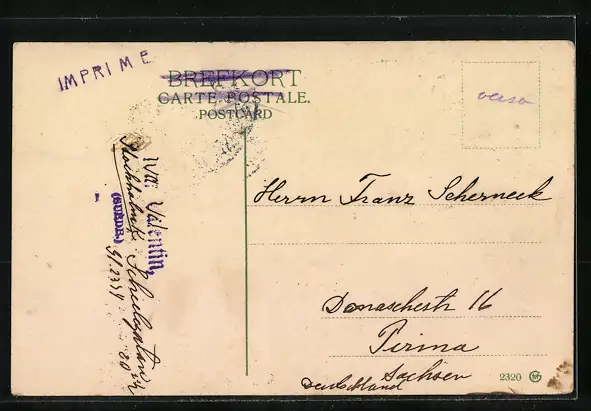 IMPRIME
BREFKORT
CARTE POSTALE.
POSTCARD
verso
Herrn Franz Scherneck
Donaschestr 16
Pirna
Sachsen
Deutschland
Valentin,
(SUEDE.)
2320